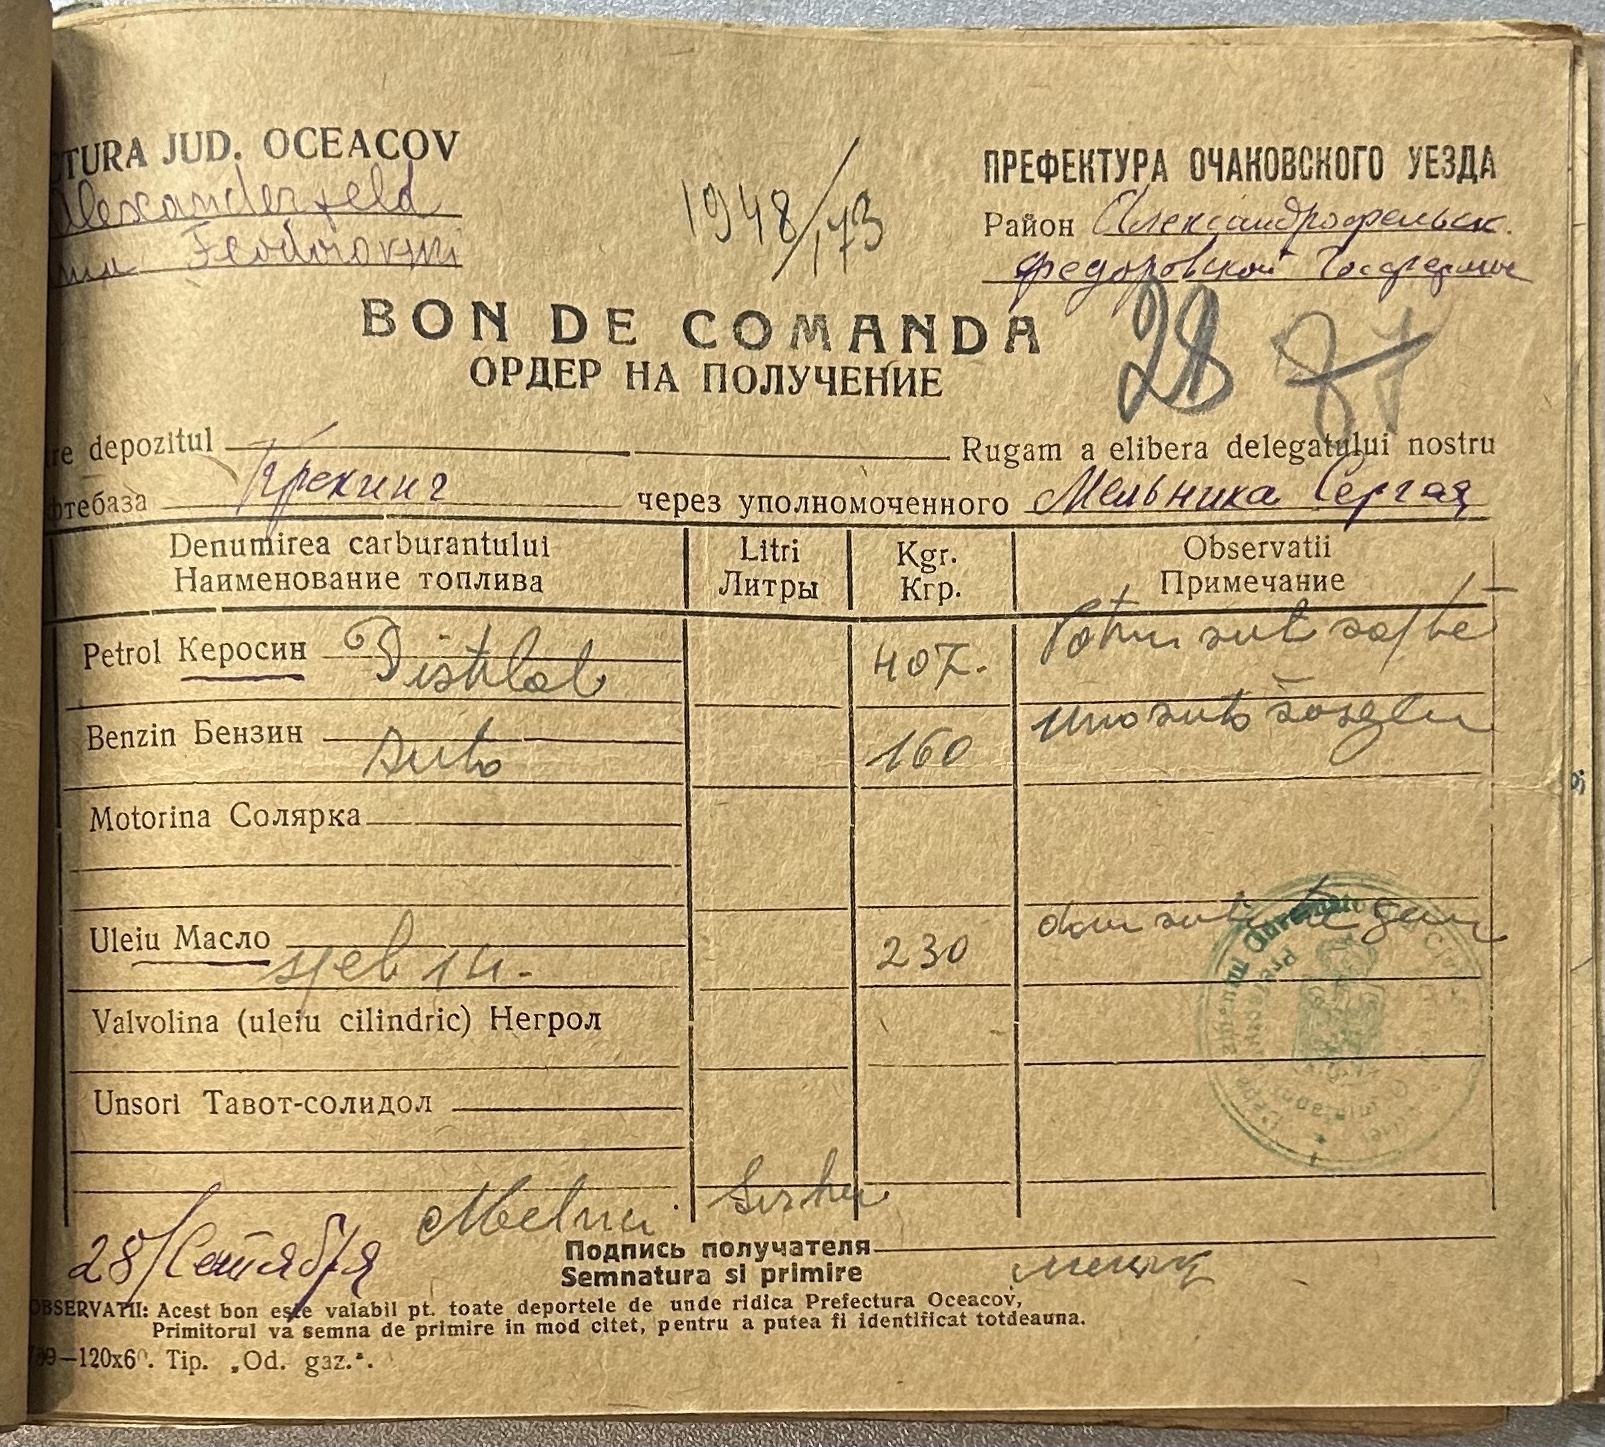 TURA JUD. OCEACOV
Alexanderfeld
Feodorovni
1948/173
ПРЕФЕКТУРА ОЧАКОВСКОГО УЕЗДА
Район Александрофельск.
федоровской Госферме
BON DE COMANDA
ОРДЕР НА ПОЛУЧЕНИЕ
28
re depozitul Rugam a elibera delegatului nostru
фтебаза Крекинг через уполномоченного Мельника Сергея
Denumirea carburantului Litri Kgr. Observatii
Наименование топлива Литры Кгр. Примечание
Petrol Керосин Distilat 407.- Patru sute sapte
Benzin Бензин 160 una suta
Motorina Солярка
Uleiu Масло 230 doua sute
Valvolina (uleiu cilindric) Негрол
Unsori Тавот-солидол
Melnic
28/Сентября
Подпись получателя
Semnatura si primire
OBSERVATII: Acest bon este valabil pt. toate deportele de unde ridica Prefectura Oceacov,
Primitorul va semna de primire in mod citet, pentru a putea fi identificat totdeauna.
—120x60. Tip. „Od. gaz.“.